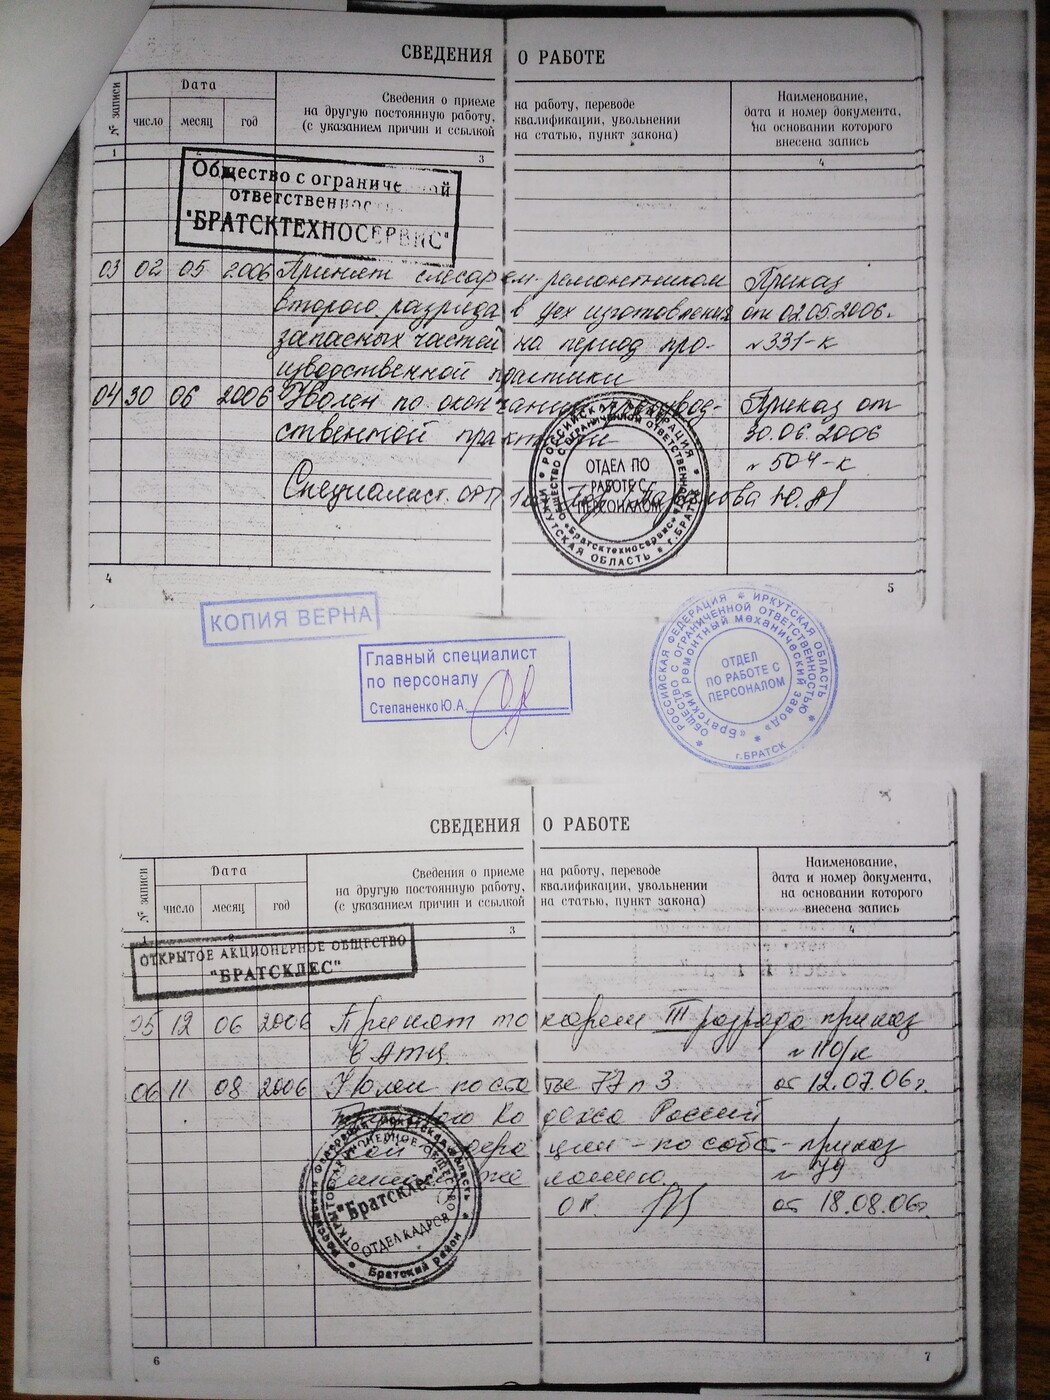 СВЕДЕНИЯ О РАБОТЕ
№ записи
Дата
число месяц год
Сведения о приеме на работу, переводе
на другую постоянную работу, квалификации, увольнении
(с указанием причин и ссылкой на статью, пункт закона)
Наименование,
дата и номер документа,
на основании которого
внесена запись
1 2 3 4
Общество с ограниче й
ответственнос
"БРАТСКТЕХНОСЕРВИС"
03 02 05 2006 Принят слесарем-ремонтником Приказ
второго разряда в цех изготовления от 02.05.2006г.
запасных частей на период про- №331-к
изводственной практики
04 30 06 2006 Уволен по окончании производ- Приказ от
ственной практики 30.06.2006
№504-к
Специалист Ю.А
РОССИЙСКАЯ ФЕДЕРАЦИЯ * ИРКУТСКАЯ ОБЛАСТЬ * г.БРАТСК
ОБЩЕСТВО С ОГРАНИЧЕННОЙ ОТВЕТСТВЕННОСТЬЮ «Братсктехносервис»
ОТДЕЛ ПО
РАБОТЕ С
ПЕРСОНАЛОМ
4 5
КОПИЯ ВЕРНА
Главный специалист
по персоналу
Степаненко Ю.А.
РОССИЙСКАЯ ФЕДЕРАЦИЯ * ИРКУТСКАЯ ОБЛАСТЬ * г.БРАТСК
ОБЩЕСТВО С ОГРАНИЧЕННОЙ ОТВЕТСТВЕННОСТЬЮ
«Братский ремонтный механический завод»
ОТДЕЛ
ПО РАБОТЕ С
ПЕРСОНАЛОМ
СВЕДЕНИЯ О РАБОТЕ
№ записи
Дата
число месяц год
Сведения о приеме на работу, переводе
на другую постоянную работу, квалификации, увольнении
(с указанием причин и ссылкой на статью, пункт закона)
Наименование,
дата и номер документа,
на основании которого
внесена запись
1 2 3 4
ОТКРЫТОЕ АКЦИОНЕРНОЕ ОБЩЕСТВО
"БРАТСКЛЕС"
05 12 06 2006 Принят токарем III разряда приказ
в АТЦ №110/к
06 11 08 2006 Уволен по статье 77 п 3 от 12.07.06г.
Трудового Кодекса Россий
ской Федерации - по собст- приказ
венному желанию. №79
ОК от 18.08.06г.
Российская Федерация Иркутская область * Братский район *
ОТКРЫТОЕ АКЦИОНЕРНОЕ ОБЩЕСТВО
"Братсклес"
ОТДЕЛ КАДРОВ
6 7